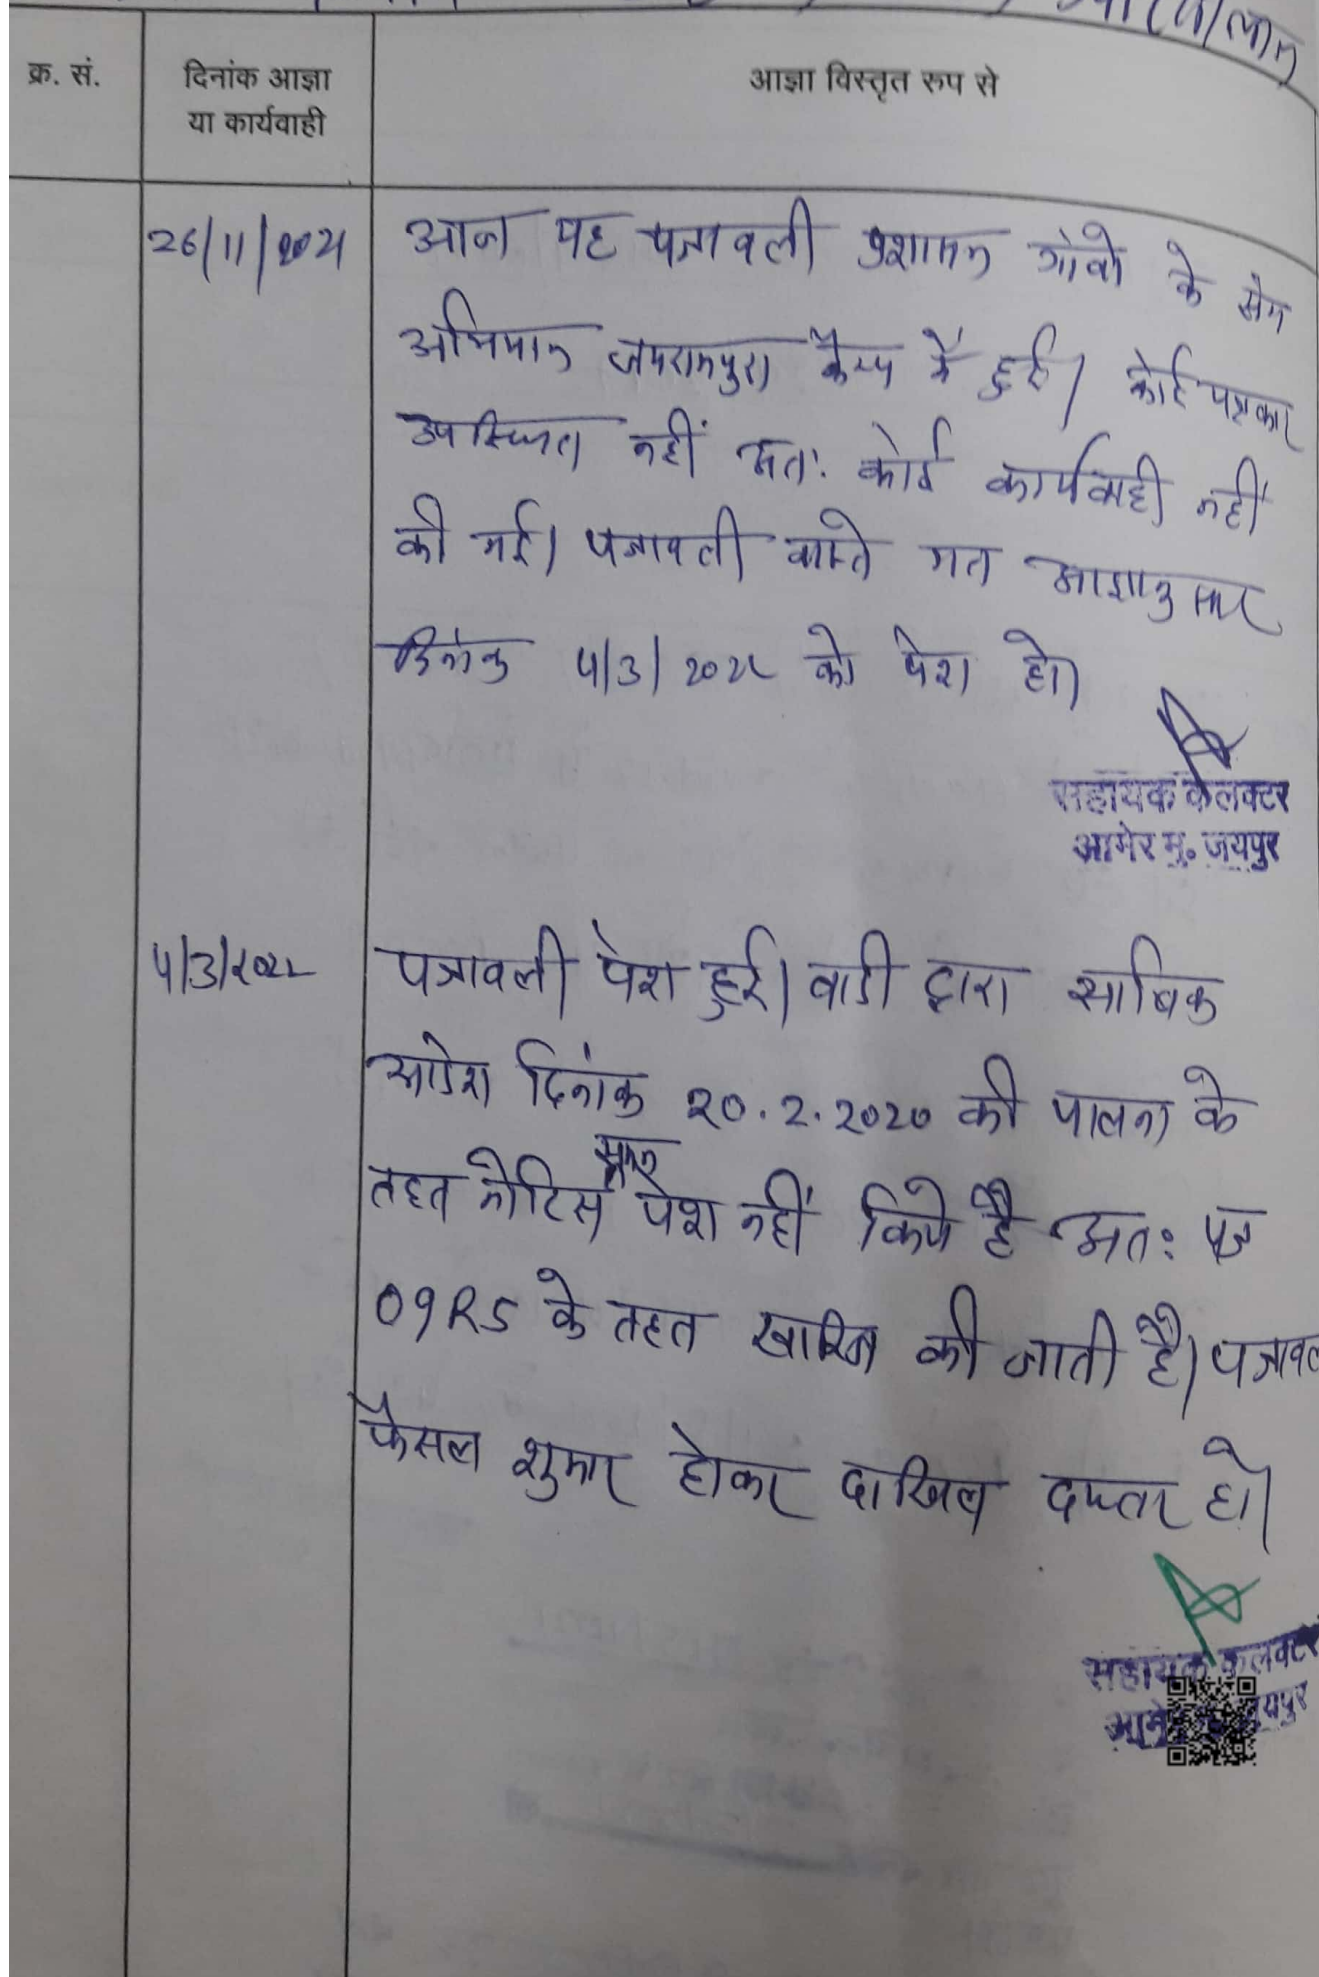 क्र. सं.
दिनांक आज्ञा
या कार्यवाही
आज्ञा विस्तृत रूप से
26/11/2021
आज यह पत्रावली प्रशासन गांवो के संग
अभियान जयरामपुरा कैम्प में हुई। कोई पक्षकार
उपस्थित नहीं अतः कोई कार्यवाही नहीं
की गई। पत्रावली वास्ते गत आज्ञानुसार
दिनांक 4/3/2022 को पेश हो।
सहायक कलक्टर
आमेर मु. जयपुर
4/3/2022
पत्रावली पेश हुई। वादी द्वारा साबिक
आदेश दिनांक 20.2.2020 की पालना के
तहत नोटिस पेश नहीं किये है अतः
O9R5 के तहत खारिज की जाती है। पत्रावल
फैसल शुमार होकर दाखिल दफ्तर हो।
सहायक कलक्टर